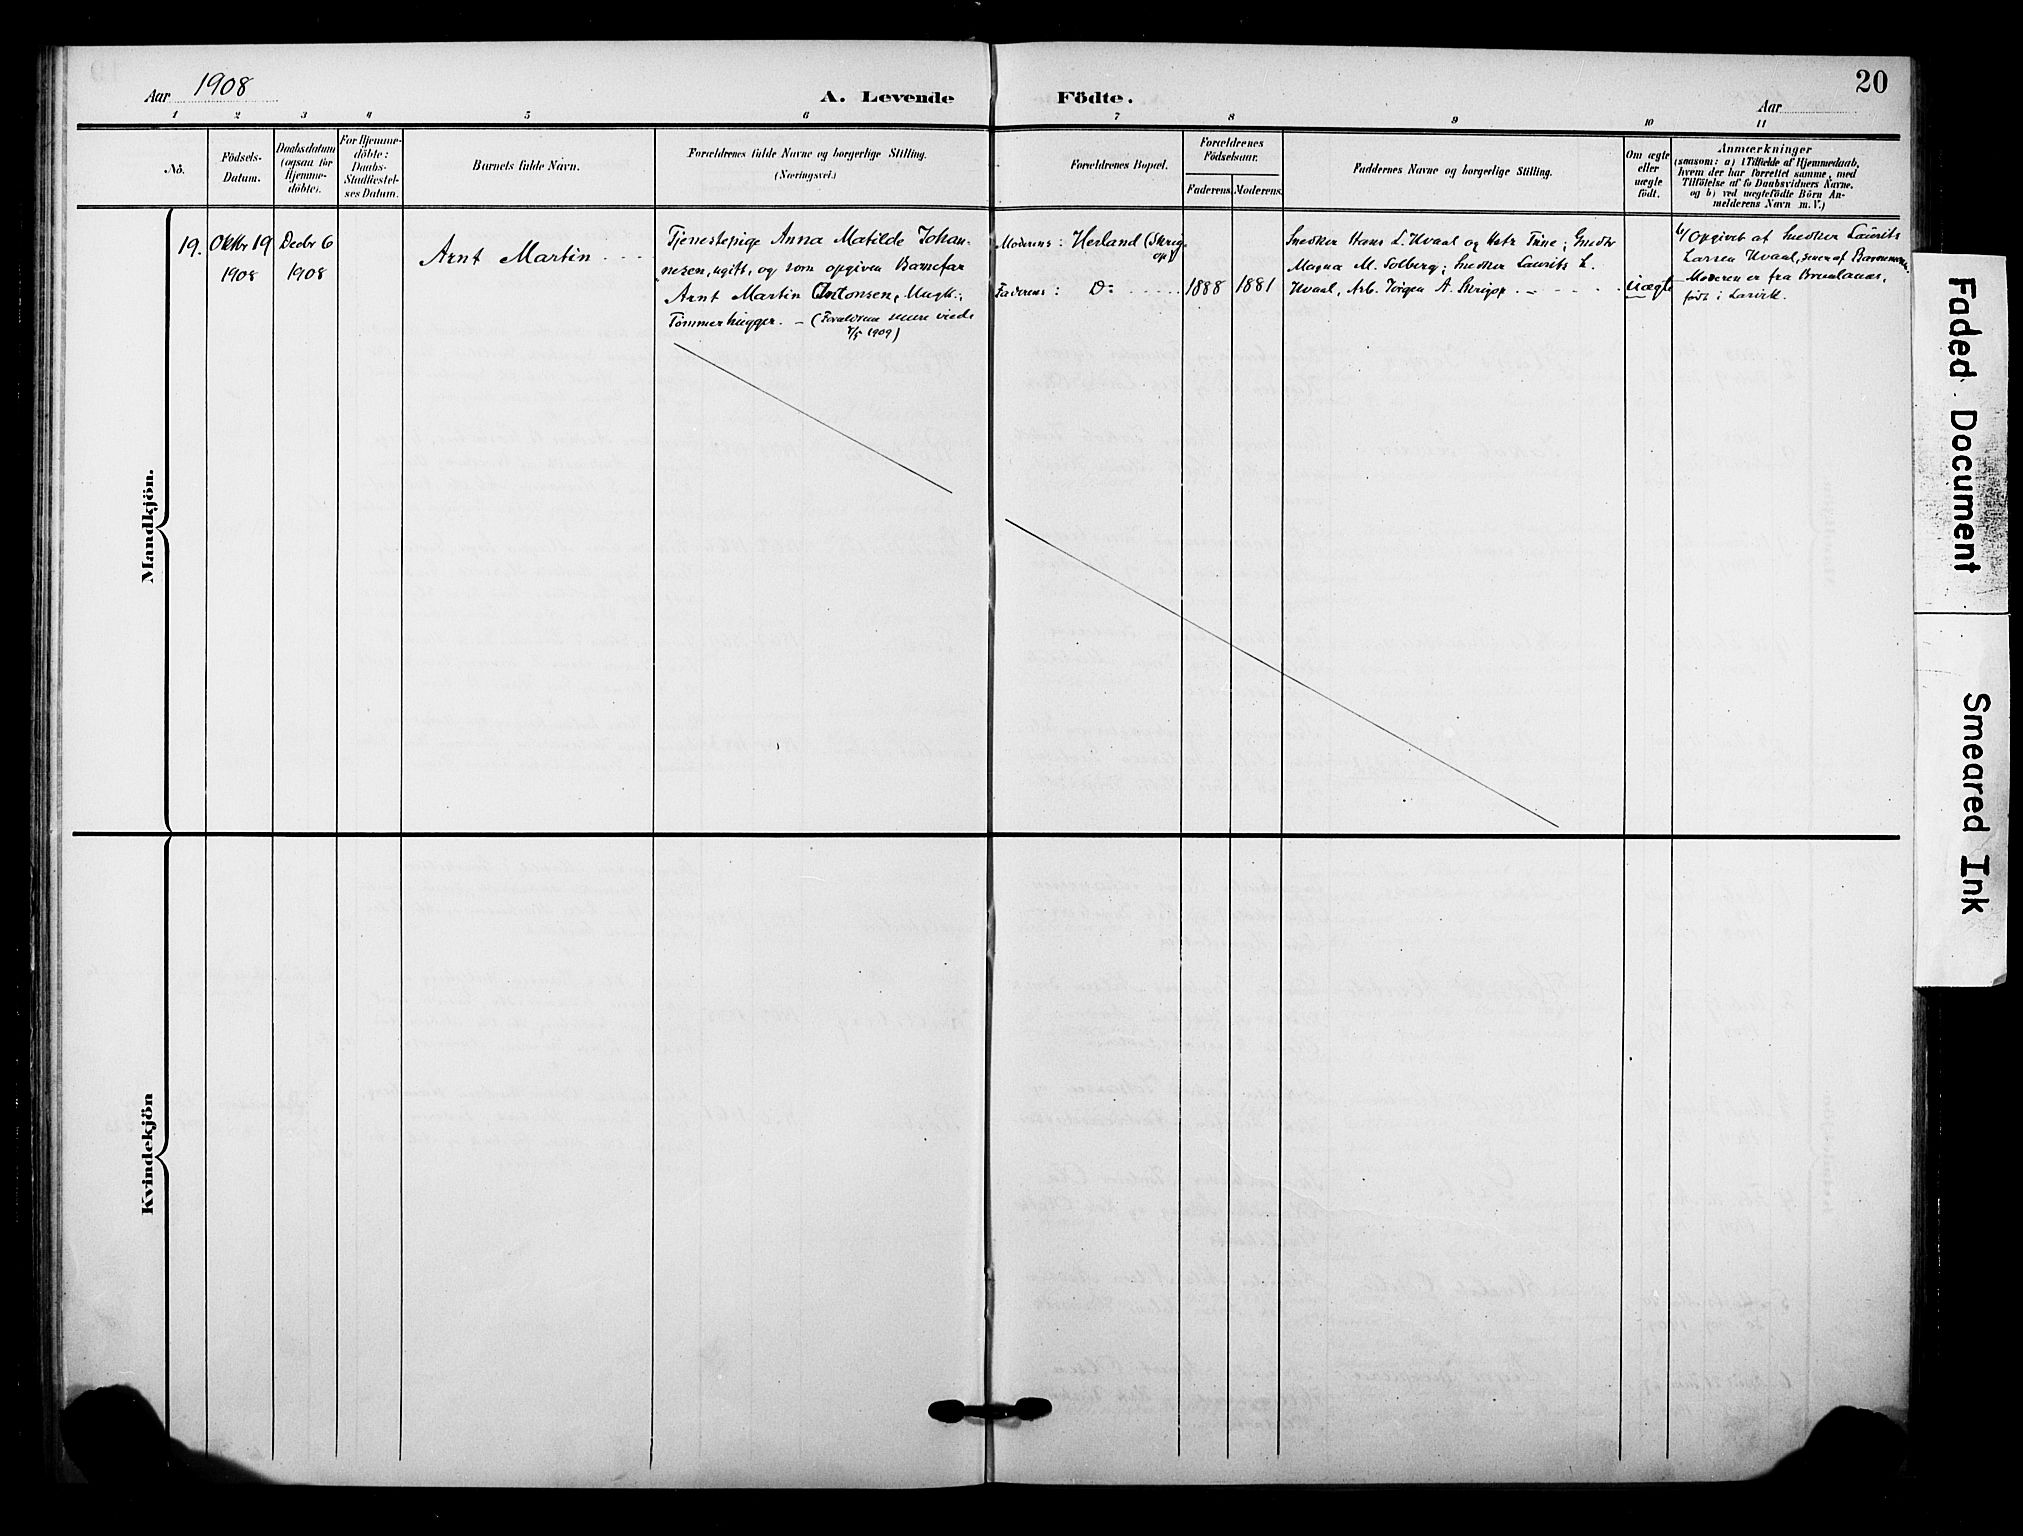 Aar 1908
A. Levende Födte.
Aar
20
1 2 3 4 5 6 7 8 9 10 11
No.
Födsels-
Datum.
Daabsdatum
(ogsaa for
Hjemme-
döbte).
For Hjemme-
döbte:
Daabs-
Stadfæstel-
ses Datum.
Barnets fulde Navn.
Forældrenes fulde Navne og borgerlige Stilling.
(Næringsvei.)
Forældrenes Bopæl.
Forældrenes
Födselsaar.
Faderens.
Moderens.
Faddernes Navne og borgerlige Stilling.
Om ægte
eller
uægte
födt.
Anmærkninger
(saasom: a) i Tilfælde af Hjemmedaab,
hvem der har forrettet samme, med
Tilföielse af to Daabsvidners Navne,
og b) ved uegtefödte Börn An-
melderens Navn m. V.)
Mandkjön.
19.
Oktbr 19
1908
Decbr 6
1908
Arnt Martin
Tjenestepige Anna Matilde Johan-
nesen, ugift, og som opgiven Barnefar
Arnt Martin Antonsen, Ungk.,
Tömmerhugger. – (Forældrene senere viede
1909)
Moderens: Herland (Skrig-
op)
Faderens: Do
1888
1881
Snedker Hans L. Hvaal og Hstr Trine; Snedkr
Magna M. Solberg; Snedker Laurits L.
Hvaal, Arb. Jörgen A. Skrigop.
Uægte
Opgivet af Snedker Laurits
Larsen Hvaal,
Moderen er fra Brunlanæs,
födt i Larvik.
Kvindekjön
Faded Document
Smeared Ink